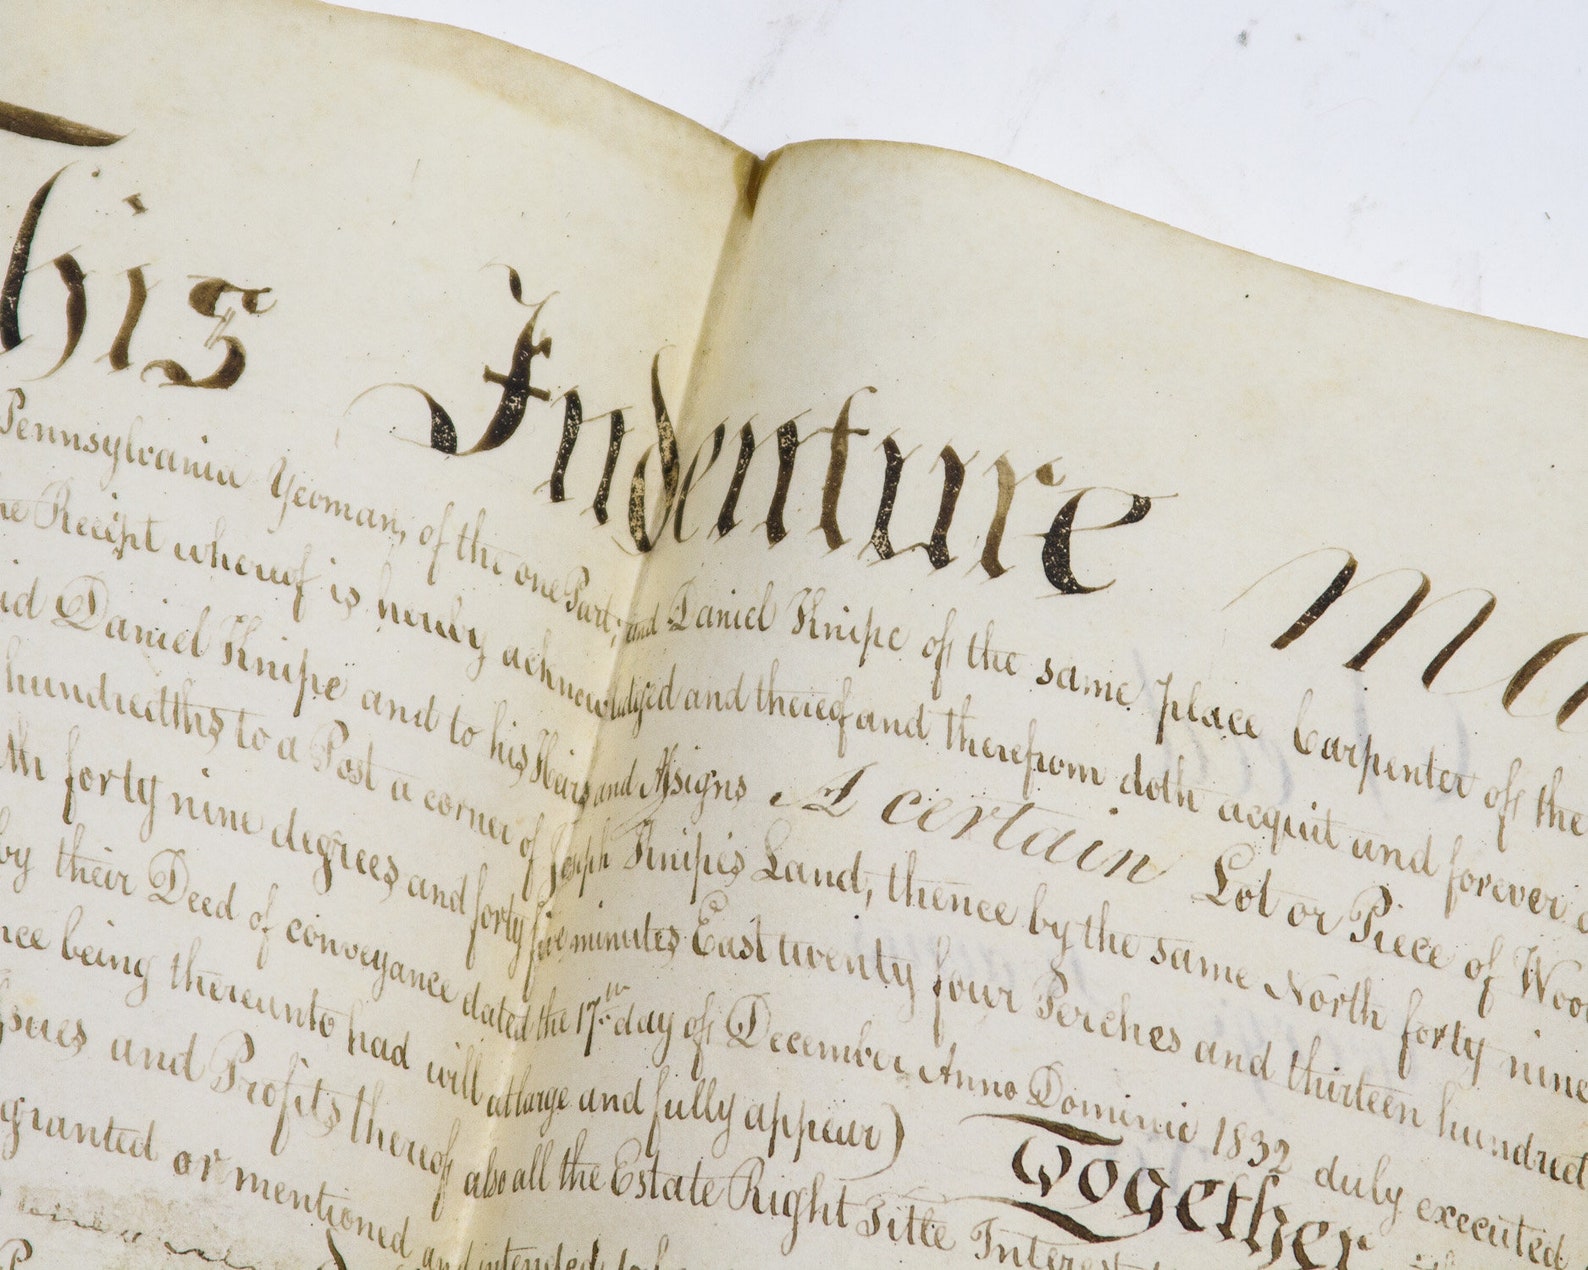 This Indenture Ma
Pennsylvania Yeoman, of the one Part; and Daniel Knipe of the same place Carpenter of the
he Receipt whereof is hereby acknowledged and thereof and therefrom doth acquit and forever
id Daniel Knipe and to his Heirs and Assigns A certain Lot or Piece of Woo
hundredths to a Post a corner of Joseph Knipe's Land, thence by the same North forty nine
th forty nine degrees and forty five minutes East twenty four Perches and thirteen hundred
by their Deed of conveyance dated the 17th day of December Anno Domini 1832 duly executed
nce being thereunto had will at large and fully appear) Together
Issues and Profits thereof also all the Estate Right Title Interest
granted or mentioned and intended to be